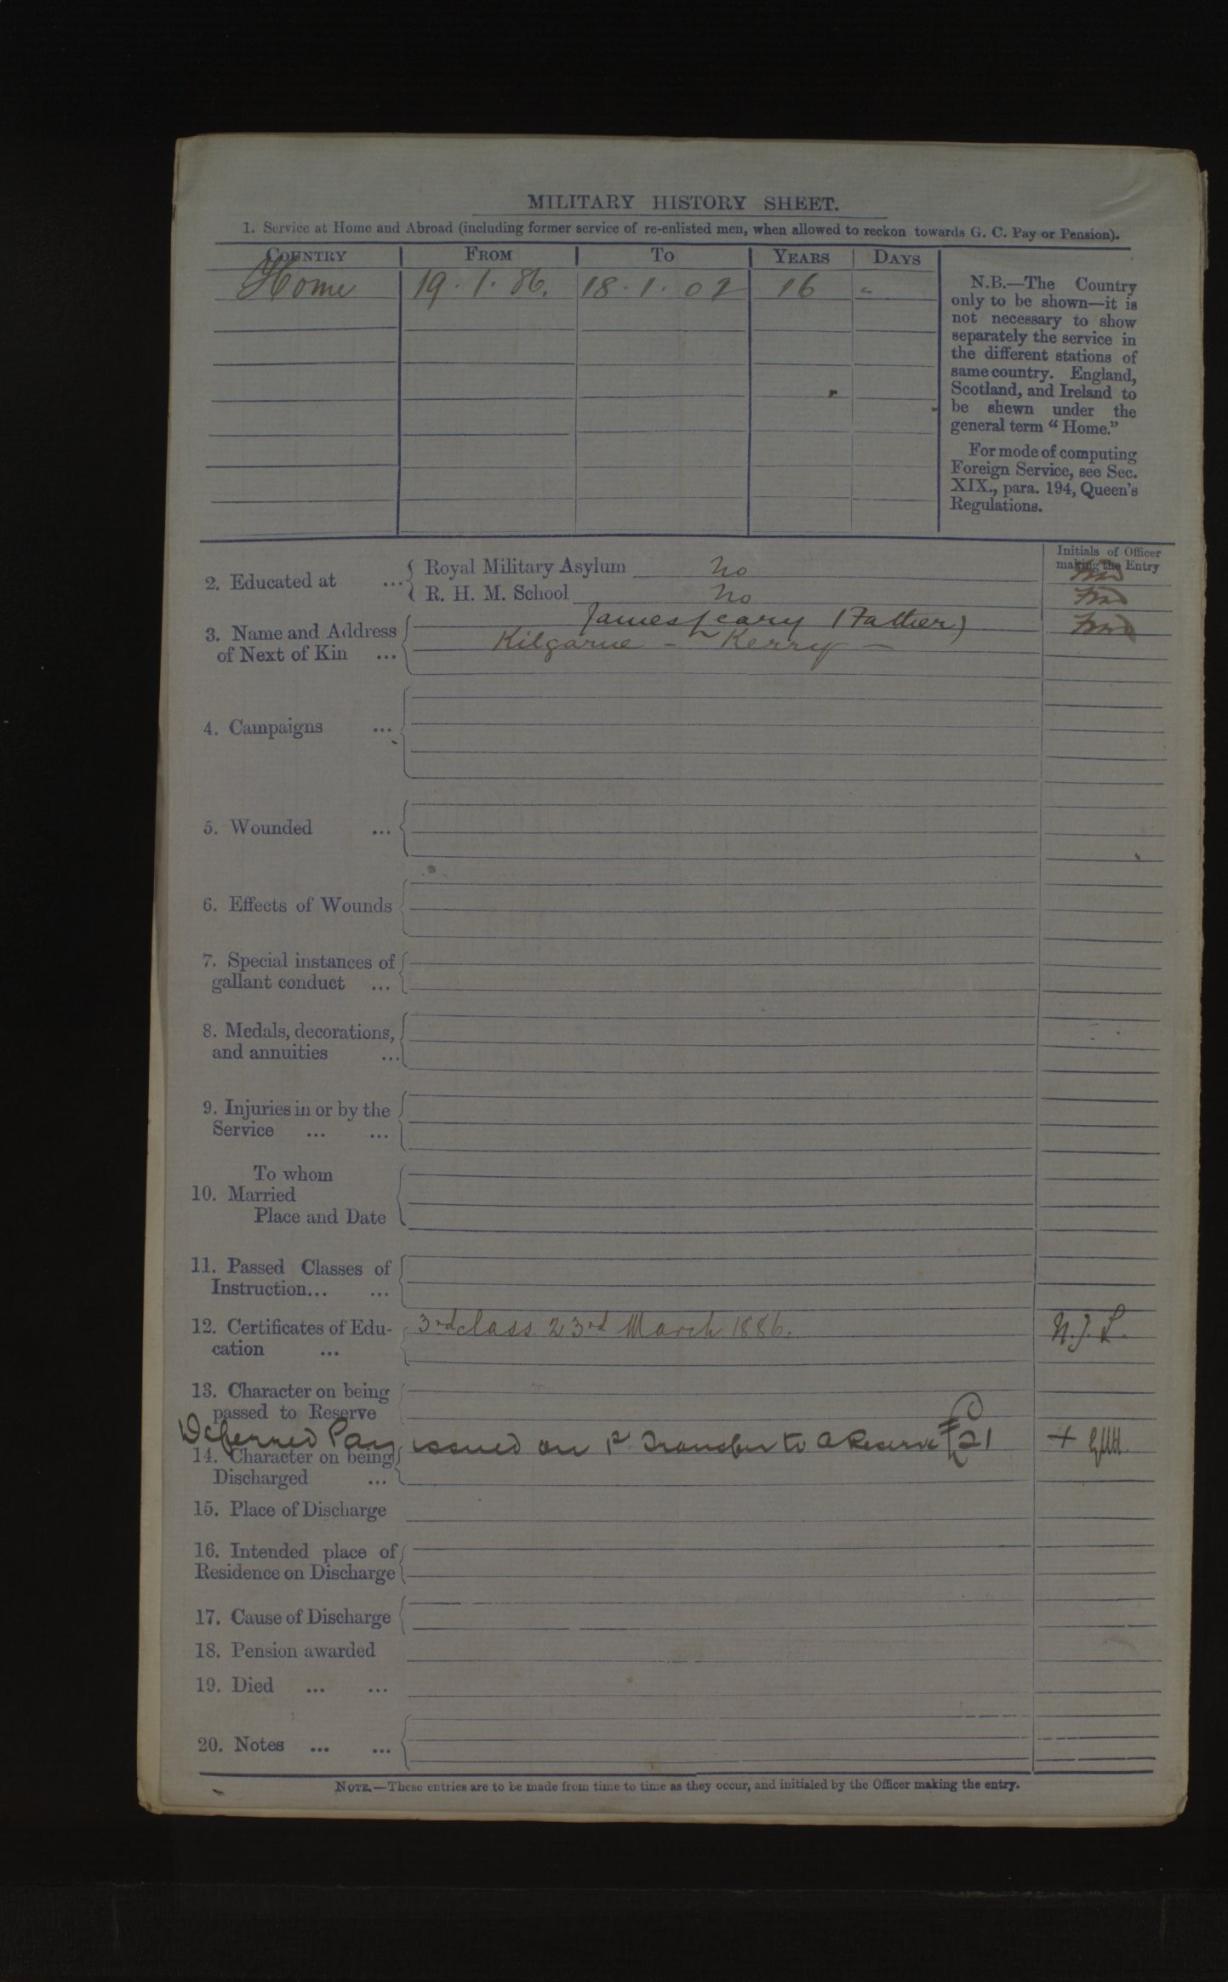 MILITARY HISTORY SHEET.
1. Service at Home and Abroad (including former service of re-enlisted men, when allowed to reckon towards G. C. Pay or Pension).
COUNTRY FROM TO YEARS DAYS
Home 19.1.86. 18.1.02 16 "
N.B.—The Country
only to be shown—it is
not necessary to show
separately the service in
the different stations of
same country. England,
Scotland, and Ireland to
be shewn under the
general term "Home."
For mode of computing
Foreign Service, see Sec.
XIX., para. 194, Queen's
Regulations.
Initials of Officer
making the Entry
2. Educated at ... Royal Military Asylum No
R. H. M. School No
3. Name and Address James Leary (Father)
of Next of Kin ... Kilgarue - Kerry -
4. Campaigns ...
5. Wounded ...
6. Effects of Wounds
7. Special instances of
gallant conduct ...
8. Medals, decorations,
and annuities ...
9. Injuries in or by the
Service ... ...
To whom
10. Married
Place and Date
11. Passed Classes of
Instruction... ...
12. Certificates of Edu- 3rd class 23rd March 1886. N.J.L.
cation ...
13. Character on being
passed to Reserve
Deferred Pay issued on 1st Transfer to A Reserve £21
14. Character on being
Discharged ...
15. Place of Discharge
16. Intended place of
Residence on Discharge
17. Cause of Discharge
18. Pension awarded
19. Died ... ...
20. Notes ... ...
NOTE.—These entries are to be made from time to time as they occur, and initialed by the Officer making the entry.